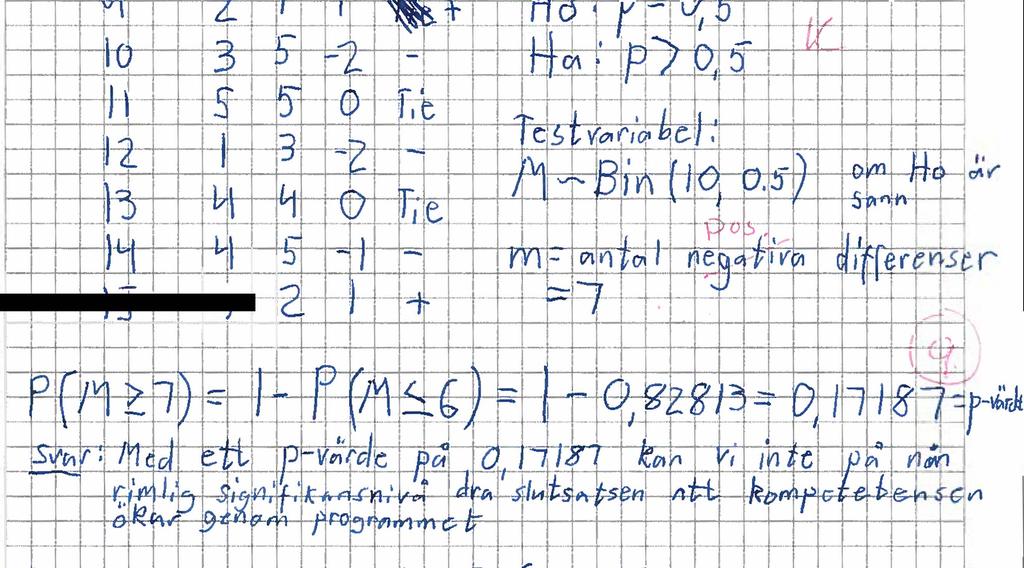 2 1 1 +
10 3 5 -2 -
11 5 5 0 Tie
12 1 3 -2 -
13 4 4 0 Tie
14 4 5 -1 -
2 1 +
Ho: p = 0,5
Ha: p > 0,5
K
Testvariabel:
M ~ Bin(10, 0.5) om Ho är
sann
pos.
m = antal negativa differenser
= 7
P(M ≥ 7) = 1 - P(M ≤ 6) = 1 - 0,82813 = 0,17187 = p-värdet
svar: Med ett p-värde på 0,17187 kan vi inte på nån
rimlig signifikansnivå dra slutsatsen att kompetetensen
ökar genom programmet